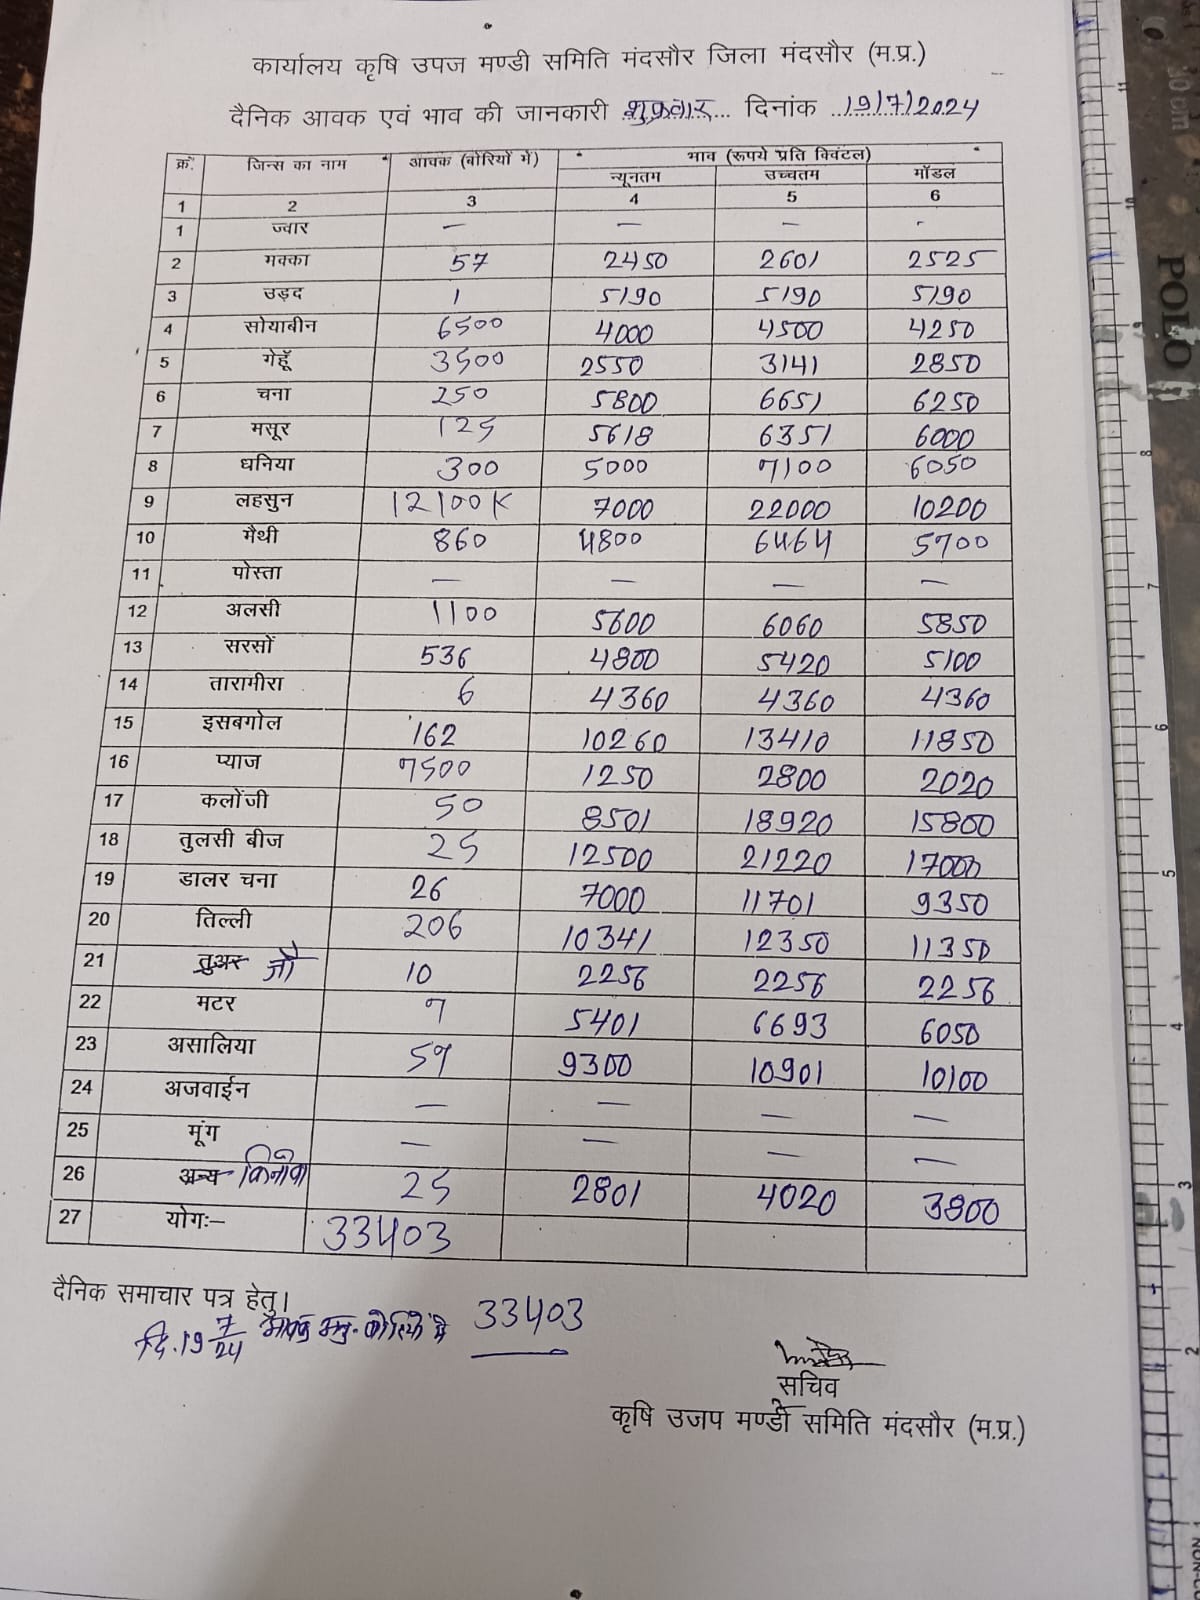 कार्यालय कृषि उपज मण्डी समिति मंदसौर जिला मंदसौर (म.प्र.)
दैनिक आवक एवं भाव की जानकारी शुक्रवार दिनांक 19/7/2024
क्रं. जिन्स का नाम आवक (बोरियों में) भाव (रूपये प्रति क्विंटल)
न्यूनतम उच्चतम मॉडल
1 2 3 4 5 6
1 ज्वार — — — -
2 मक्का 57 2450 2601 2525
3 उड़द 1 5190 5190 5190
4 सोयाबीन 6500 4000 4500 4250
5 गेहूँ 3500 2550 3141 2850
6 चना 250 5800 6651 6250
7 मसूर 125 5618 6351 6000
8 धनिया 300 5000 7100 6050
9 लहसुन 12100K 7000 22000 10200
10 मैथी 860 4800 6464 5700
11 पोस्ता — — — —
12 अलसी 1100 5600 6060 5850
13 सरसों 536 4800 5420 5100
14 तारामीरा 6 4360 4360 4360
15 इसबगोल 162 10260 13410 11850
16 प्याज 7500 1250 2800 2020
17 कलोंजी 50 8501 18920 15800
18 तुलसी बीज 25 12500 21220 17000
19 डालर चना 26 7000 11701 9350
20 तिल्ली 206 10341 12350 11350
21 तुअर जौ 10 2256 2256 2256
22 मटर 7 5401 6693 6050
23 असालिया 57 9300 10901 10100
24 अजवाईन — — — —
25 मूंग — — — —
26 अन्य किनोवा 25 2801 4020 3800
27 योगः— 33403
दैनिक समाचार पत्र हेतु।
दि. 19 7/24 आवक बोरियों में 33403
सचिव
कृषि उजप मण्डी समिति मंदसौर (म.प्र.)
10 cm
POLO
11
10
9
8
7
6
5
4
3
2